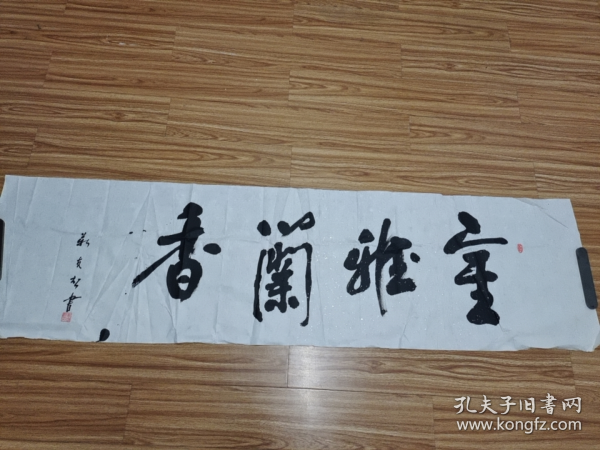 室雅蘭香
書
孔夫子旧書网
www.kongfz.com